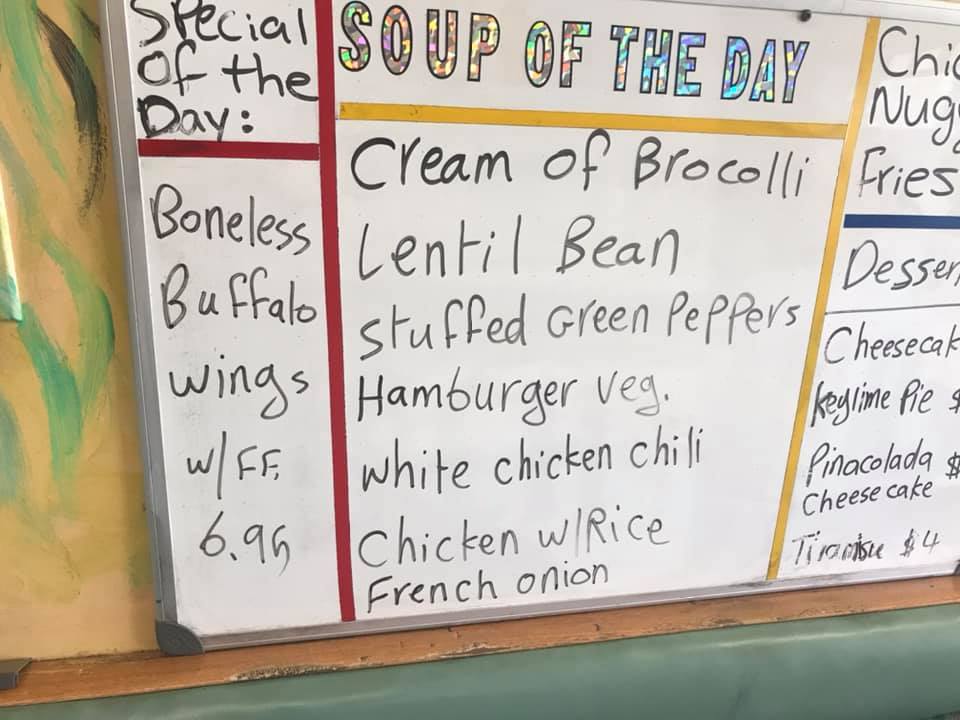 Special
Of the
Day:
Boneless
Buffalo
wings
w/ F.F.
6.95
SOUP OF THE DAY
Cream of Brocolli
Lentil Bean
stuffed Green Peppers
Hamburger veg.
white chicken chili
Chicken w/Rice
French onion
Chic
Nugg
Fries
Desser
Cheesecak
Keylime Pie $
Pinacolada $
Cheesecake
$4